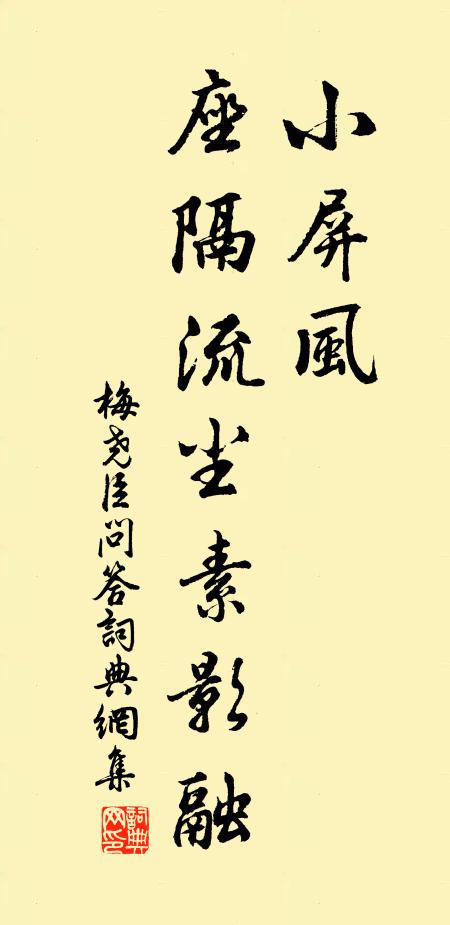 小屏風
座隔流尘素影融
梅尧臣问答詞典網集
詞典网印